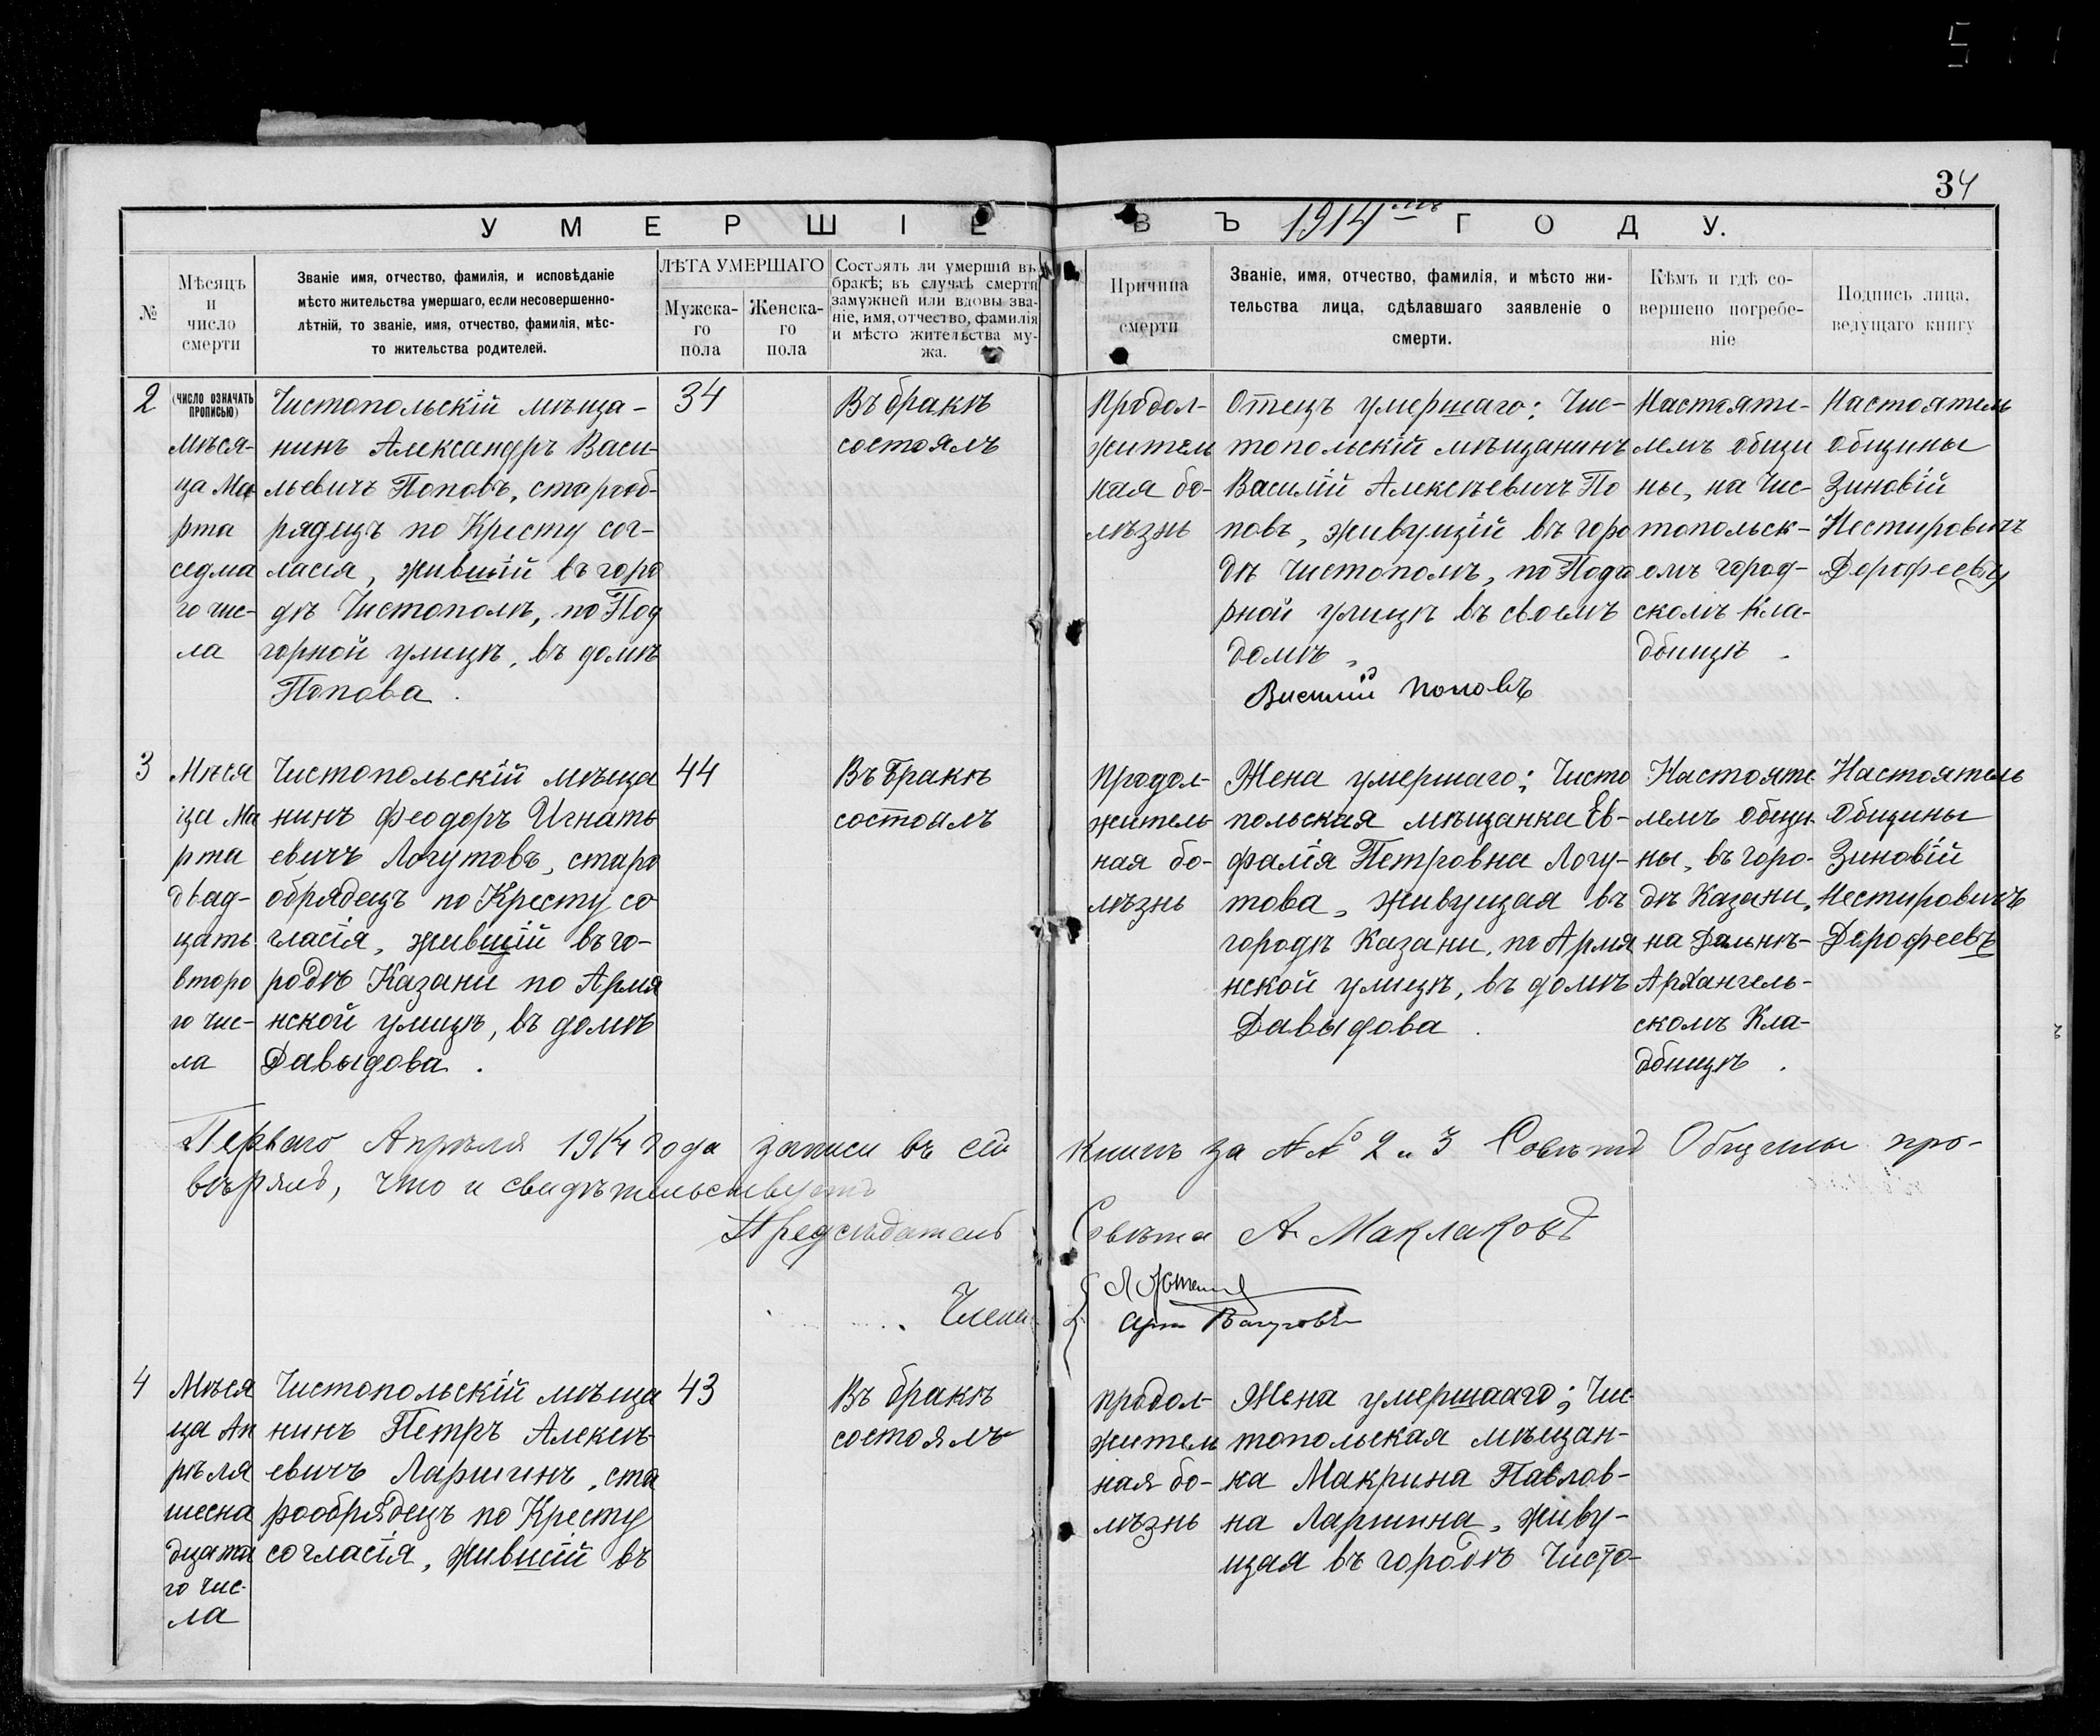 5 1 1
34
УМЕРШІЕ
ВЪ 1914мъ ГОДУ.
№
Мѣсяцъ
и
число
смерти
Званіе имя, отчество, фамилія, и исповѣданіе
мѣсто жительства умершаго, если несовершенно-
лѣтній, то званіе, имя, отчество, фамилія, мѣс-
то жительства родителей.
ЛѢТА УМЕРШАГО
Мужска-
го
пола
Женска-
го
пола
Состоялъ ли умершій въ
бракѣ; въ случаѣ смерти
замужней или вдовы зва-
ніе, имя, отчество, фамилія
и мѣсто жительства му-
жа.
Причина
смерти
Званіе, имя, отчество, фамилія, и мѣсто жи-
тельства лица, сдѣлавшаго заявленіе о
смерти.
Кѣмъ и гдѣ со-
вершено погребе-
ніе
Подпись лица,
ведущаго книгу
2
(ЧИСЛО ОЗНАЧАТЬ
ПРОПИСЬЮ)
мѣся-
ца Ма
рта
седма
го чис-
ла
Чистопольскій мѣща-
нинъ Александръ Васи-
льевичъ Поповъ, старооб-
рядецъ по Кресту сог-
ласія, жившій въ горо
дѣ Чистополѣ, по Под
горной улицѣ, въ домѣ
Попова.
34
Въ бракѣ
состоялъ
Продол-
жител
ная бо-
лѣзнь
Отецъ умершаго: Чис-
топольскій мѣщанинъ
Василій Алексѣевичъ По
повъ, живущій въ горо
дѣ Чистополѣ, по Подго
рной улицѣ въ своемъ
домѣ,
Василій Поповъ
Настояте-
лемъ общи
ны, на Чис-
топольск-
омъ город-
скомъ Кла-
дбищѣ.
Настоятель
Общины
Зиновій
Нестировичъ
Дорофеевъ
3
Мѣся
ца Ма
рта
двад-
цать
второ
го чис-
ла
Чистопольскій мѣща
нинъ Феодоръ Игнать
евичъ Логутовъ, старо
обрядецъ по Кресту со
гласія, жившій въ го-
родѣ Казани по Армя
нской улицѣ, въ домѣ
Давыдова.
44
Въ бракѣ
состоялъ
Продол-
житель
ная бо-
лѣзнь
Жена умершаго; Чисто
польская мѣщанка Ев-
фалія Петровна Логу-
това, живущая въ
городѣ Казани, по Армя
нской улицѣ, въ домѣ
Давыдова.
Настояте
лемъ Общи
ны, въ горо-
дѣ Казани,
на Дальнѣ-
Архангель-
скомъ Кла-
дбищѣ.
Настоятель
Общины
Зиновій
Нестировичъ
Дорофеевъ
Перваго Апрѣля 1914 года записи въ сей книгѣ за №№ 2 и 3 Совѣтъ Общины про-
вѣрялъ, что и свидѣтельствуетъ
Предсѣдатель Совѣта А. Маклаковъ
Члены
4
Мѣся
ца Ап
рѣля
шесна
дцата
го чис-
ла
Чистопольскій мѣща
нинъ Петръ Алексѣ-
евичъ Ларшинъ, ста
рообрядецъ по Кресту
согласія, жившій въ
43
Въ бракѣ
состоялъ
продол-
жител
ная бо-
лѣзнь
Жена умершааго; Чис
топольская мѣщан-
ка Макрина Павлов-
на Ларшина, живу-
щая въ городѣ Чисто-